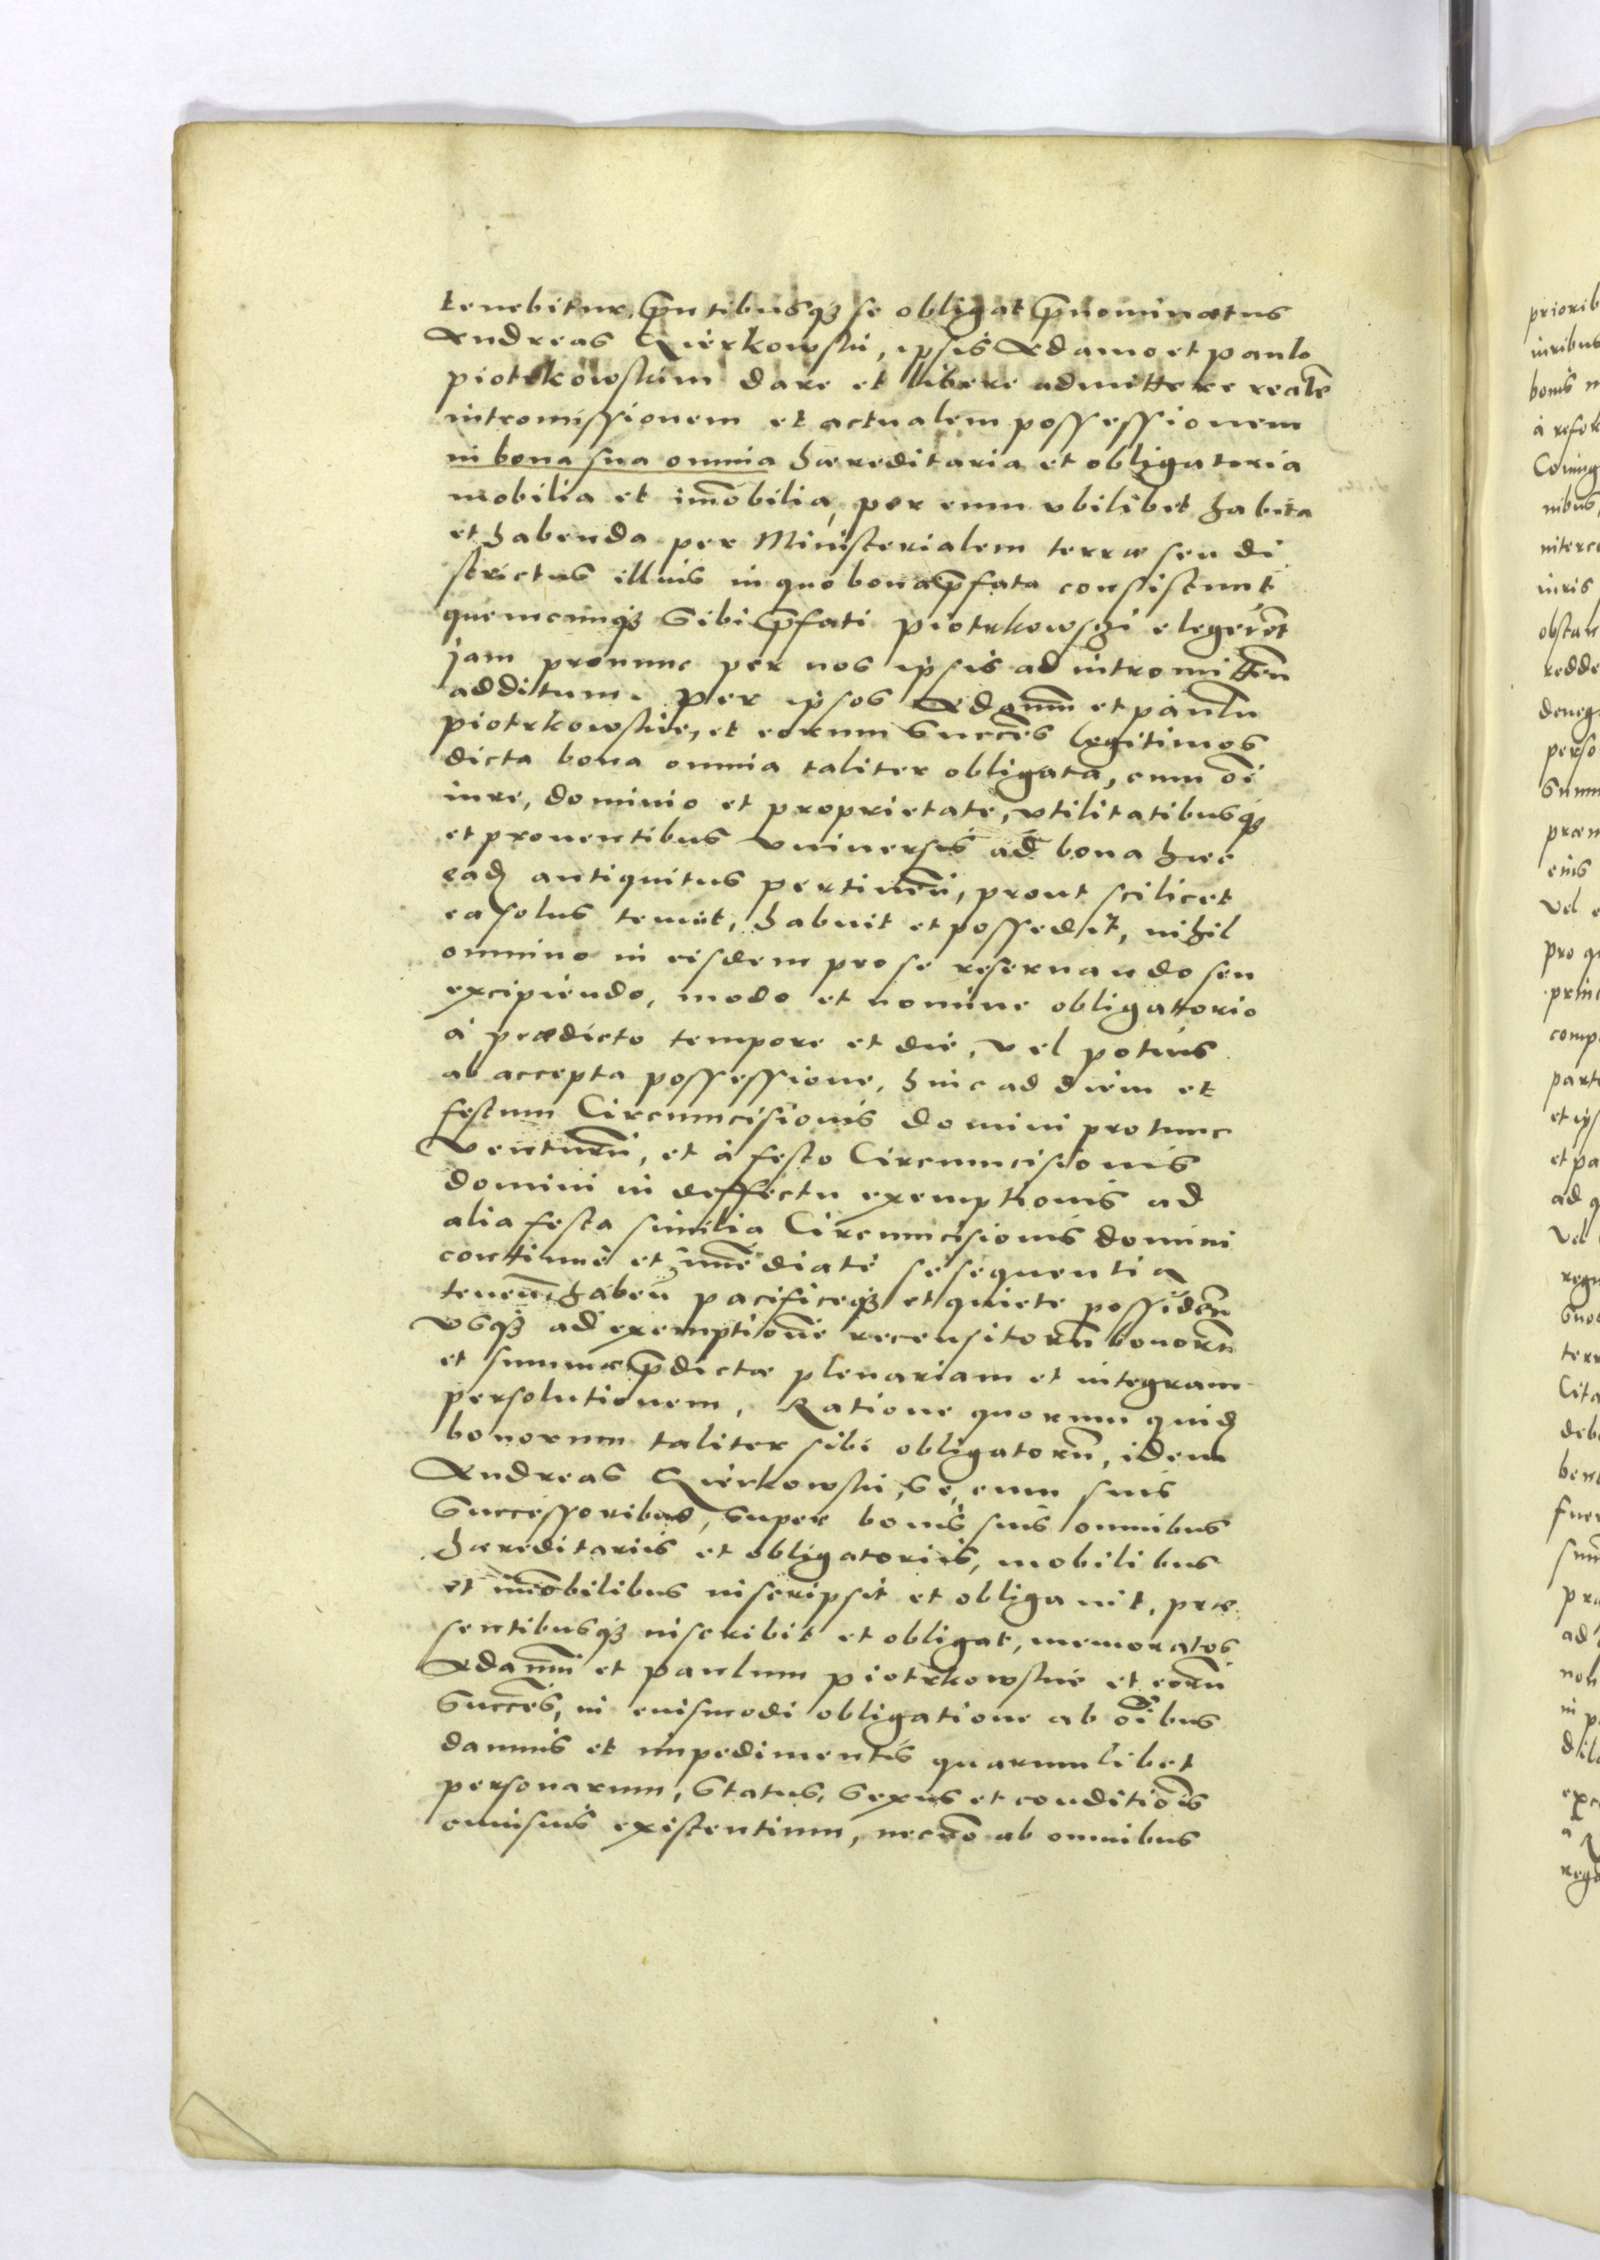 tenebitur, p̄ntibusq3 se obligat p̄nominatus
Andreas Gierkowski, ipsis Adamo et paulo
piotrkowskim dare et libere admittere realē
intromissionem et actualem possessionem
in bona sua omnia haereditaria et obligatoria
mobilia et im̄obilia, per eum vbilibet habita
et habenda per Ministerialem terrae seu di
strictus illius in quo bona p̄fata consistunt
quemcunq3 sibi p̄fati piotrkowski elegerēt
jam pronunc per nos ipsis ad intromittēn
additum. per ipsos Adamū et paulū
piotrkowskie, et eorum succēs legitimos
dicta bona omnia taliter obligata, cum ōi
iure, dominio et proprietate, vtilitatibusq3
et prouentibus vniuersis ad bona haec
ead antiquitus pertineñ, prout scilicet
ea solus tenuit, habuit et possedit, nihil
omnino in eisdem pro se reseruando seu
excipiendo, modo et nomine obligattorio
à praedicto tempore et die, vel potius
ab accepta possessione, hinc ad diem et
festum Circumcisionis domini protunc
venturū, et à festo Circumcisionis
domini in deffectu exemptionis ad
alia festa similia Circumcisionis domini
continuè et im̄ediatè se sequentia
teneñ, habeñ pacificeq3 et quiete possideñ
vsq3 ad exemptionē recensitorū bonorū
et summae p̄dictae plenariam et integram
persolutionem, Ratione quorum quid
bonorum taliter sibi obligatorū, idem
Andreas Gierkowski, se, cum suis
successoribus, super bonis suis omnibus
haereditariis et obligatoriis, mobilibus
et im̄obilibus inscripsit et obligauit, prae
sentibusq3 inscribit et obligat, memoratos
Adamū et paulum piotrkowskie et eorū
succēs, in euismodi obligatione ab ōibus
damnis et impedimentis quarumlibet
personarum, status, sexus et conditiōis
cuiusuis existentium, necnō ab omnibus